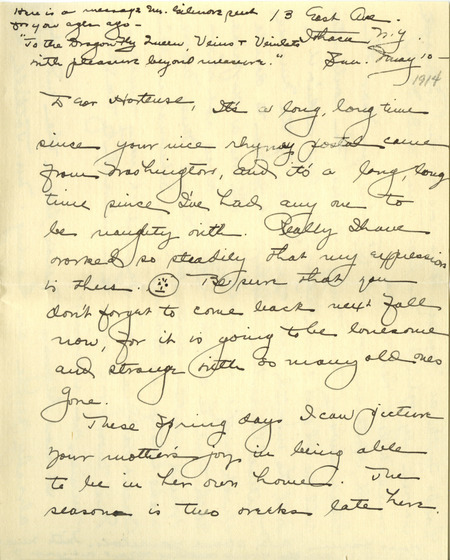 Here is a message Mr. Gilmore sent
for you ages ago –
"To the Dragon Fly Queen, Veins & Veinlets
with pleasure beyond measure."
13 East Ave.
Ithaca N.Y.
Sun. May 10 –
1914
Dear Hortense, It's a long, long time
since your nice rhymey postal came
from Washington, and it's a long, long
time since I've had any one to
be naughty with. Really I have
worked so steadily that my expression
is thus. Be sure that you
don't forget to come back next Fall
now, for it is going to be lonesome
and strange with so many old ones
gone.
These Spring days I can picture
your mother's joy in being able
to be in her own home. The
season is two weeks late here.